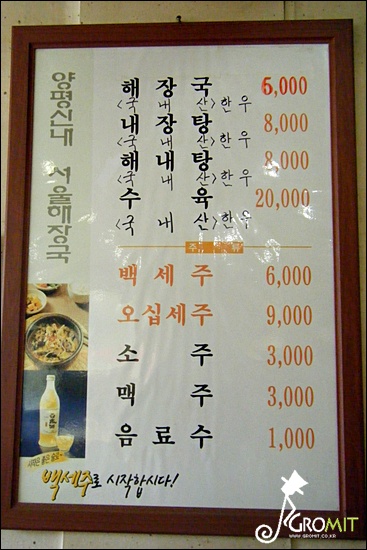 양평신내 서울해장국
해장국 5,000
<국내산>한우
내장탕 8,000
<국내산>한우
해내탕 8,000
<국내산>한우
수육 20,000
<국내산>한우
백세주 6,000
오십세주 9,000
소주 3,000
맥주 3,000
음료수 1,000
백세주로 시작합시다!
GROMIT
WWW.GROMIT.CO.KR